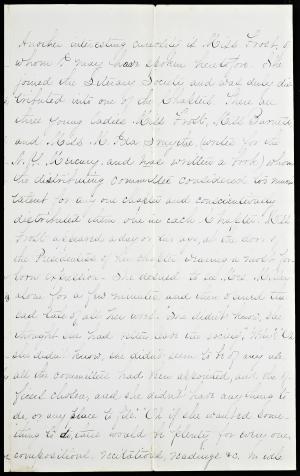 Another interesting curiosity is Miss Frost, of
whom I may have spoken heretofore. She
joined the Literary Society and was duly dis-
tributed into one of the Chapters. There are
three young ladies Miss Frost, Miss Burnett
and Miss M. (writes for the
N. Y. Mercury, and has written a book) whom
the distributing committee considered too much
talent for any one chapter and conscientiously
distributed them one in each Chapter. Miss
Frost appeared a day or two ago, at the door of
the Presidentess of her chapter wearing a most for-
lorn expression. She desired to see Mrs.
alone for a few minutes and then opened the
sad tale of all her woes. She didn't know, she
thought she had better leave the society. Why? Oh
she didn't know, she didn't seem to be of any use.
all the committees had been appointed, and the of-
ficers chosen, and she didn't have anything to
do, or any place to fill. Oh if she wanted some-
thing to do, there would be plenty for every one,
compositions, recitations, readings &c. in the